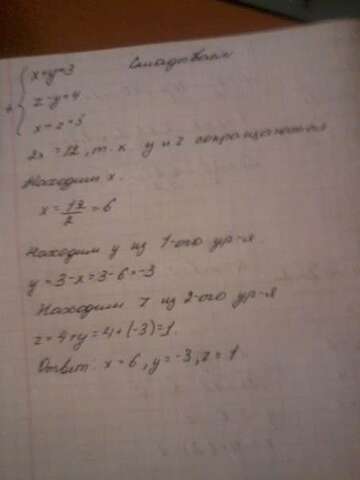 Складываем
x+y=3
+ z-y=4
x-z=5
2x=12, т.к. y и z сокращаются
Находим x.
x=12/2=6
Находим y из 1-ого ур-я
y=3-x=3-6=-3
Находим z из 2-ого ур-я
z=4+y=4+(-3)=1.
Ответ: x=6, y=-3, z=1